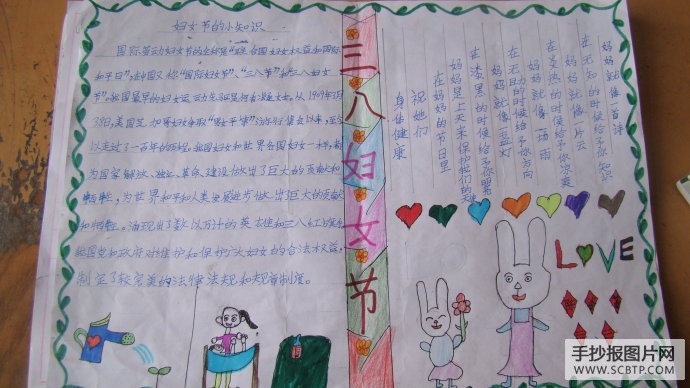 妇女节的小知识
国际劳动妇女节的全称是"联合国妇女权益和国际
和平日",在中国又称"国际妇女节"、"三八节"和三八妇女
节"。我国最早的妇女运动先驱是何香凝女士。从1909年3月
8日,美国芝加哥妇女争取"男女平等"之游行集会以来,至今
以走过了一百年的历程。我国妇女和世界各国妇女一样,都
为国家解放、独立、革命、建设做出了巨大的贡献和
牺牲。为世界和平和人类发展进步做出了巨大的贡献
和牺牲。涌现出了数以万计的英雄和三八红
我国党和政府对维护和保护广大妇女的合法权益,
制定了较完美的法律法规和规章制度。
三八妇女节
妈妈就像一首诗
在无知的时候给予你知识
妈妈就像一片云
在炎热的时候给予你凉爽
妈妈就像一场雨
在无助的时候给予你方向
妈妈就像一盏灯
在漆黑的时候给予你照明
妈妈是上天派来保护我们的天使
在妈妈的节日里
祝她们
身体健康
LOVE
手抄报图片网
WWW.SCBTP.COM